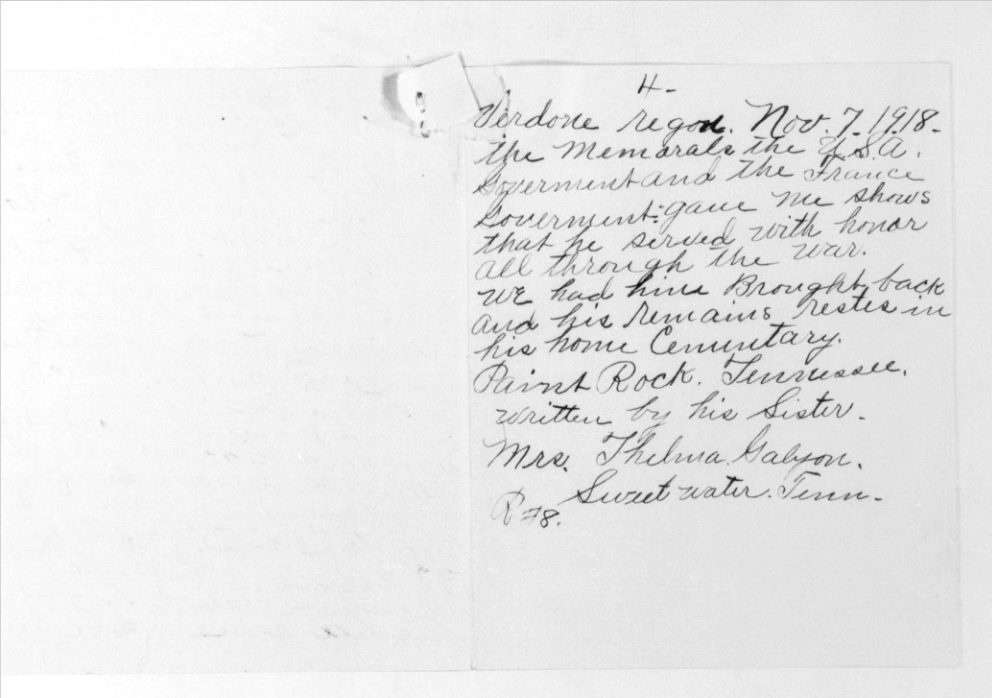 4-
Verdone regon. Nov. 7. 1918-
the Memorals the U.S.A.
Goverment and the France
Goverment: gave me shows
that he served with honor
all through the war.
WE had him Brought back
and his remains restes in
his home Cemmtary.
Paint Rock. Tennessee.
written by his Sister.
Mrs. Thelma Galyon.
Sweetwater. Tenn-
R #8.